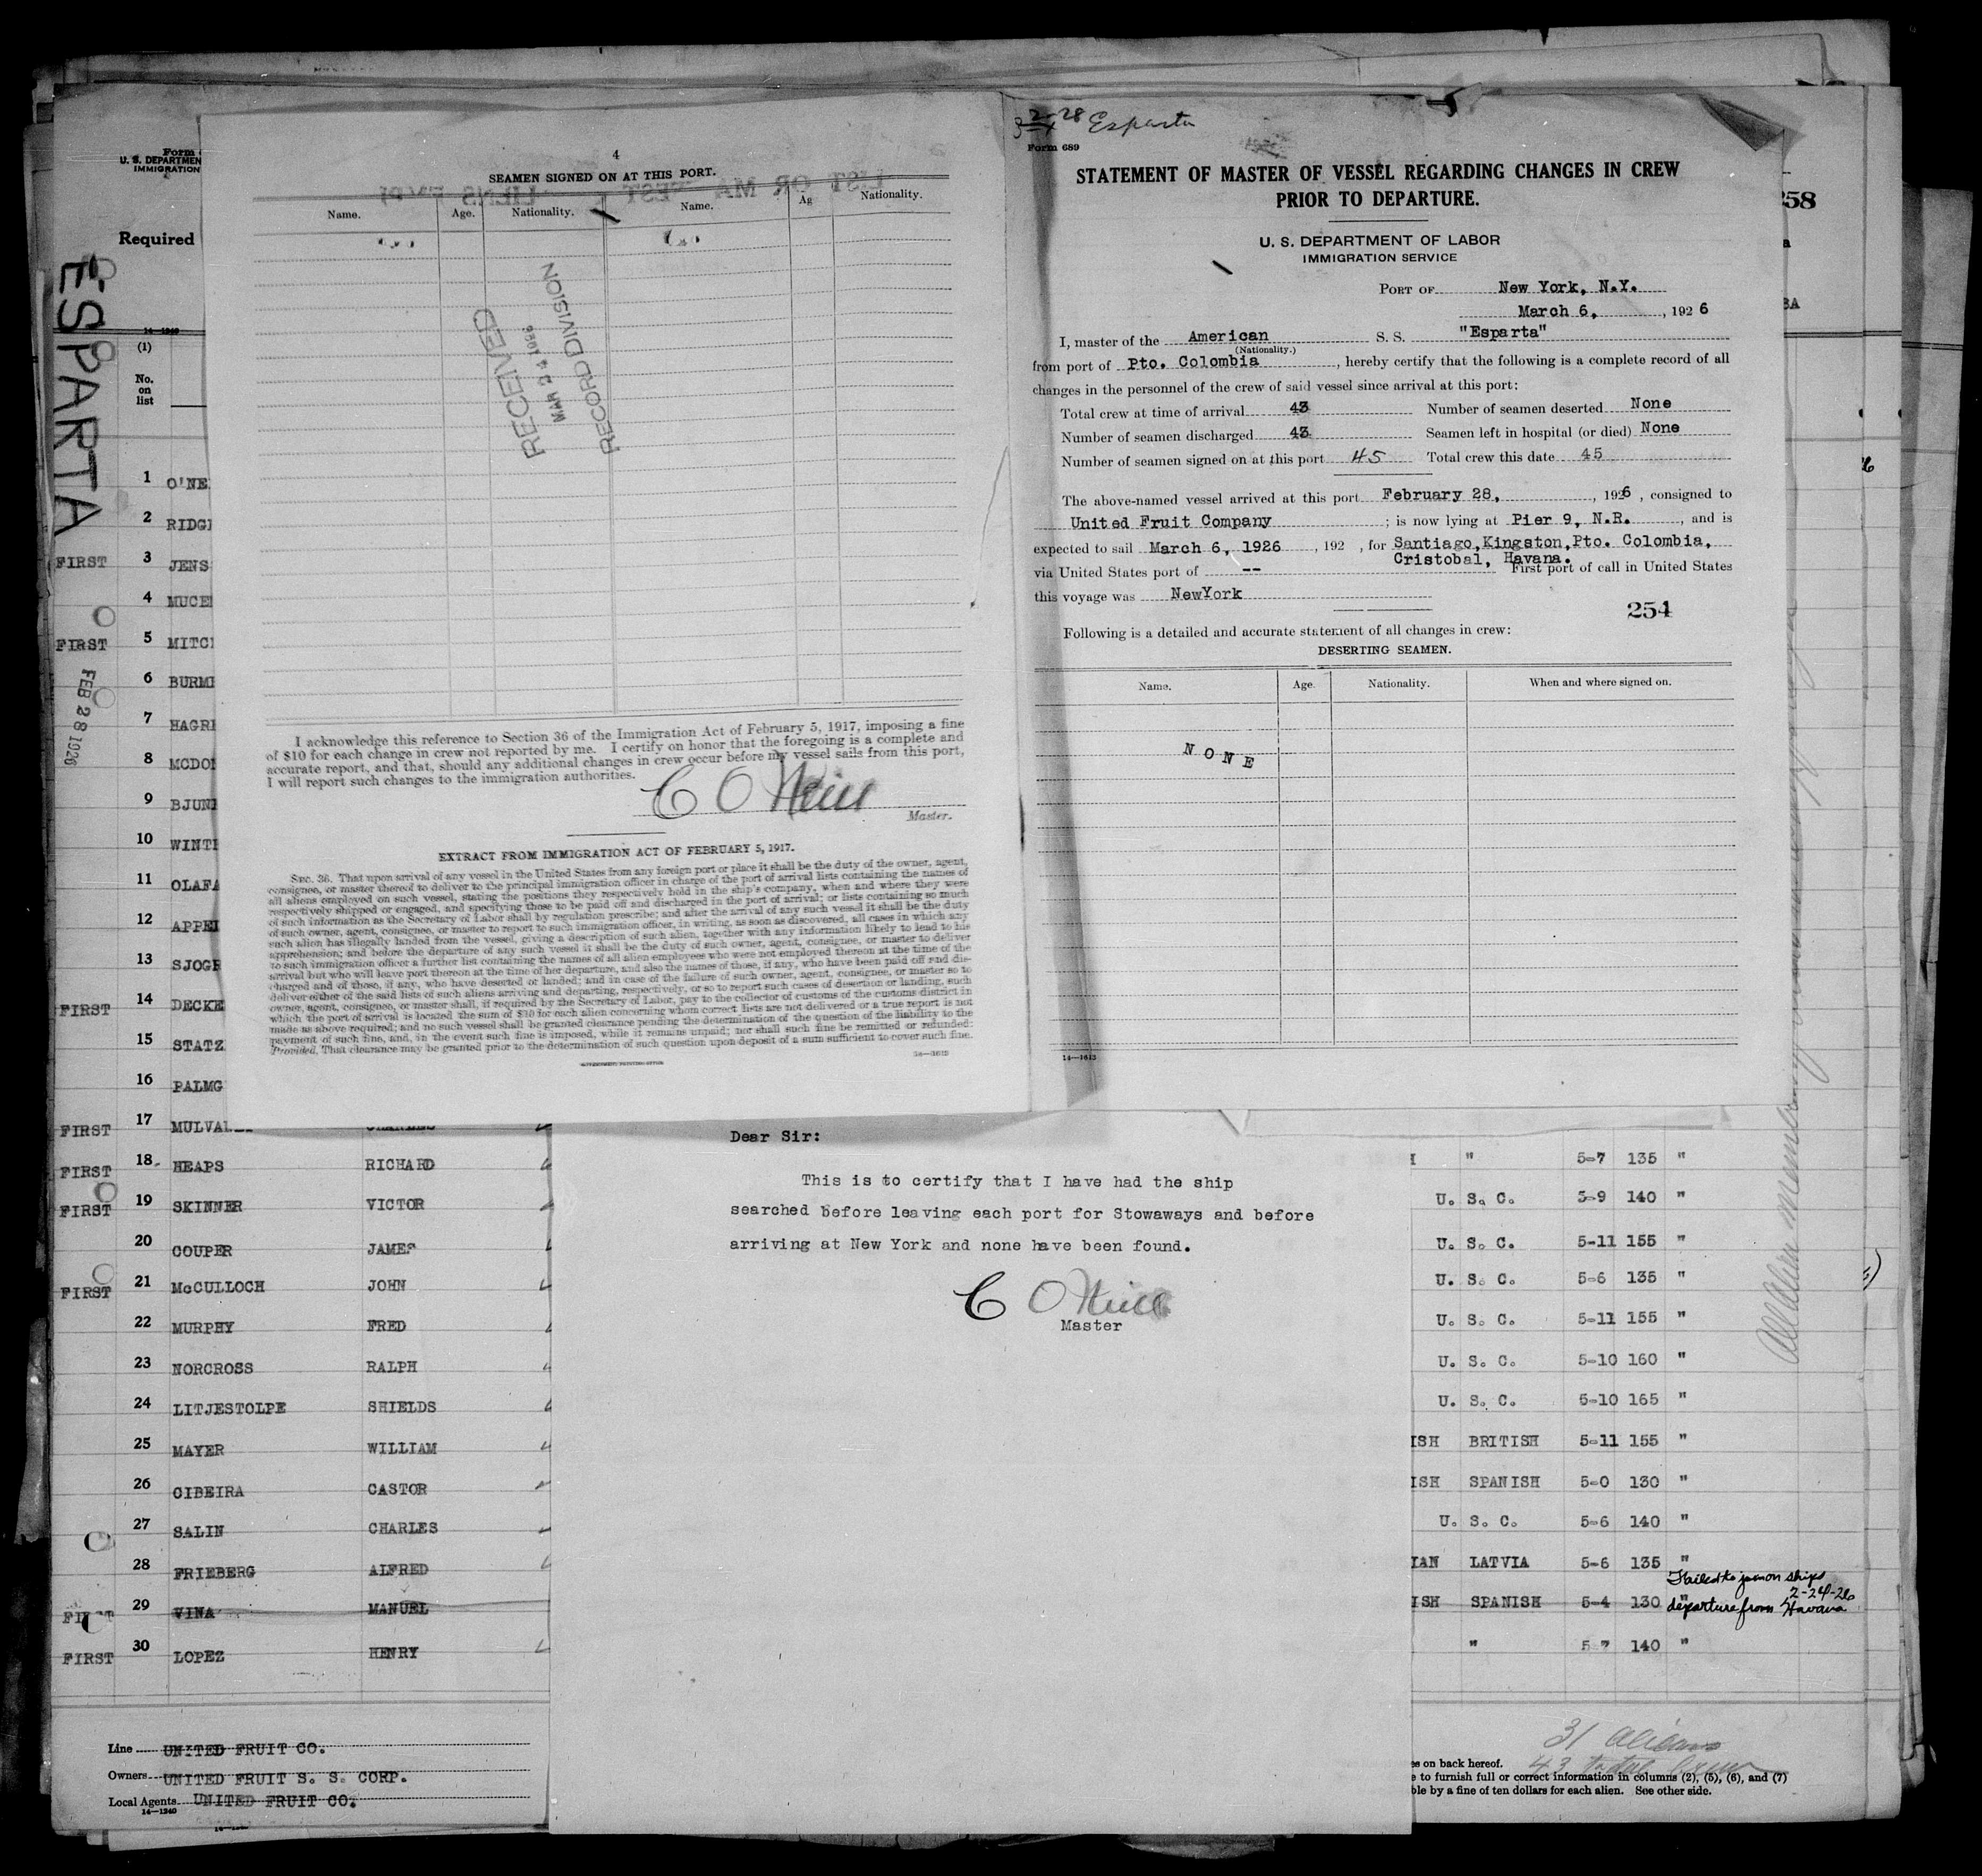 Form
U. S. DEPARTMEN
IMMIGRATION
Required
ESPARTA
14—1240
(1)
No.
on
list
1 O'NE
2 RIDG
FIRST 3 JENS
4 MUCE
FIRST 5 MITC
6 BURM
FEB 28 1926
7 HAGR
8 MCDO
9 BJUN
10 WINT
11 OLAFA
12 APPE
13 SJOG
FIRST 14 DECKE
15 STATZ
16 PALMG
FIRST 17 MULVA
FIRST 18 HEAPS RICHARD
FIRST 19 SKINNER VICTOR
20 COUPER JAMES
FIRST 21 McCULLOCH JOHN
22 MURPHY FRED
23 NORCROSS RALPH
24 LITJESTOLPE SHIELDS
25 MAYER WILLIAM
26 CIBEIRA CASTOR
27 SALIN CHARLES
28 FRIEBERG ALFRED
29 VINA MANUEL
FIRST 30 LOPEZ HENRY
Line UNITED FRUIT CO.
Owners UNITED FRUIT S. S. CORP.
Local Agents UNITED FRUIT CO.
14—1240
4
SEAMEN SIGNED ON AT THIS PORT.
Name. Age. Nationality. Name. Ag Nationality.
RECEIVED
MAR 24 1926
RECORD DIVISION
I acknowledge this reference to Section 36 of the Immigration Act of February 5, 1917, imposing a fine
of $10 for each change in crew not reported by me. I certify on honor that the foregoing is a complete and
accurate report, and that, should any additional changes in crew occur before my vessel sails from this port,
I will report such changes to the immigration authorities.
C O'Neill
Master.
EXTRACT FROM IMMIGRATION ACT OF FEBRUARY 5, 1917.
SEC. 36. That upon arrival of any vessel in the United States from any foreign port or place it shall be the duty of the owner, agent,
consignee, or master thereof to deliver to the principal immigration officer in charge of the port of arrival lists containing the names of
all aliens employed on such vessel, stating the positions they respectively hold in the ship's company, when and where they were
respectively shipped or engaged, and specifying those to be paid off and discharged in the port of arrival; or lists containing so much
of such information as the Secretary of Labor shall by regulation prescribe; and after the arrival of any such vessel it shall be the duty
of such owner, agent, consignee, or master to report to such immigration officer, in writing, as soon as discovered, all cases in which any
such alien has illegally landed from the vessel, giving a description of such alien, together with any information likely to lead to his
apprehension; and before the departure of any such vessel it shall be the duty of such owner, agent, consignee, or master to deliver
to such immigration officer a further list containing the names of all alien employees who were not employed thereon at the time of the
arrival but who will leave port thereon at the time of her departure, and also the names of those, if any, who have been paid off and dis-
charged and of those, if any, who have deserted or landed; and in case of the failure of such owner, agent, consignee, or master so to
deliver either of the said lists of such aliens arriving and departing, respectively, or so to report such cases of desertion or landing, such
owner, agent, consignee, or master shall, if required by the Secretary of Labor, pay to the collector of customs of the customs district in
which the port of arrival is located the sum of $10 for each alien concerning whom correct lists are not delivered or a true report is not
made as above required; and no such vessel shall be granted clearance pending the determination of the question of the liability to the
payment of such fine, and, in the event such fine is imposed, while it remains unpaid; nor shall such fine be remitted or refunded:
Provided, That clearance may be granted prior to the determination of such question upon deposit of a sum sufficient to cover such fine.
GOVERNMENT PRINTING OFFICE 14—1613
2-28 Esparta
Form 689
STATEMENT OF MASTER OF VESSEL REGARDING CHANGES IN CREW
PRIOR TO DEPARTURE.
U. S. DEPARTMENT OF LABOR
IMMIGRATION SERVICE
PORT OF New York, N.Y.
March 6, , 1926
I, master of the American S. S. "Esparta"
(Nationality.)
from port of Pto. Colombia , hereby certify that the following is a complete record of all
changes in the personnel of the crew of said vessel since arrival at this port:
Total crew at time of arrival 43 Number of seamen deserted None
Number of seamen discharged 43 Seamen left in hospital (or died) None
Number of seamen signed on at this port 45 Total crew this date 45
The above-named vessel arrived at this port February 28, , 1926 , consigned to
United Fruit Company ; is now lying at Pier 9, N.R. , and is
expected to sail March 6, 1926 , 192 , for Santiago,Kingston,Pto. Colombia,
Cristobal, Havana.
via United States port of -- First port of call in United States
this voyage was NewYork
254
Following is a detailed and accurate statement of all changes in crew:
DESERTING SEAMEN.
Name. Age. Nationality. When and where signed on.
NONE
14—1613
258
Dear Sir:
This is to certify that I have had the ship
searched before leaving each port for Stowaways and before
arriving at New York and none have been found.
C O'Neill
Master
" 5-7 135 "
U. S. C. 5-9 140 "
U. S. C. 5-11 155 "
U. S. C. 5-6 135 "
U. S. C. 5-11 155 "
U. S. C. 5-10 160 "
U. S. C. 5-10 165 "
ISH BRITISH 5-11 155 "
ISH SPANISH 5-0 130 "
U. S. C. 5-6 140 "
IAN LATVIA 5-6 135 "
ISH SPANISH 5-4 130 "
Failed to join on ships
2-24-26
departure from Havana
" 5-7 140 "
31 aliens
43 total crew
es on back hereof.
e to furnish full or correct information in columns (2), (5), (6), and (7)
ble by a fine of ten dollars for each alien. See other side.